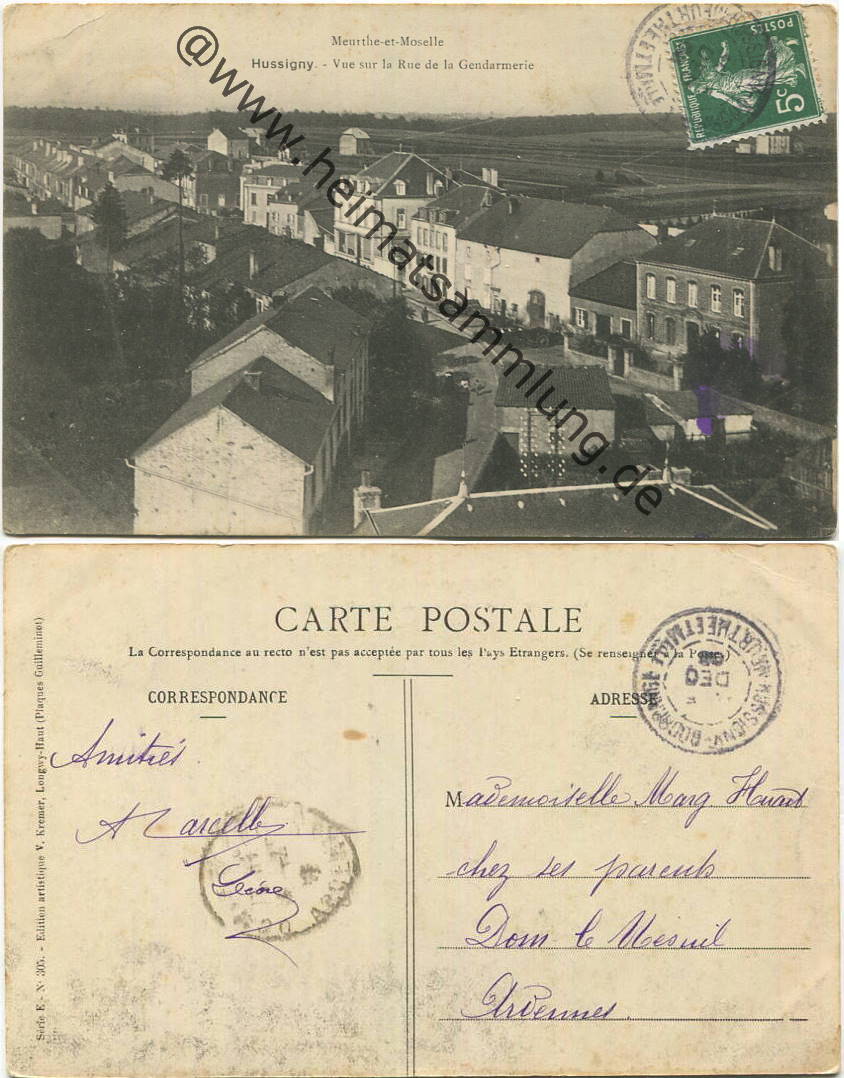 Meurthe-et-Moselle
Hussigny. - Vue sur la Rue de la Gendarmerie
POSTES
5c
REPUBLIQUE FRANÇAISE
@www.heimatsammlung.de
CARTE POSTALE
La Correspondance au recto n'est pas acceptée par tous les Pays Etrangers. (Se renseigner à la Poste)
CORRESPONDANCE
ADRESSE
Amitiés.
Marcelle
Mademoiselle Marg Huart
chez ses parents
Dom le Mesnil
Ardennes.
DEC
Série E - No 305. - Edition artistique V. Kremer, Longwy-Haut (Plaques Guilleminot)